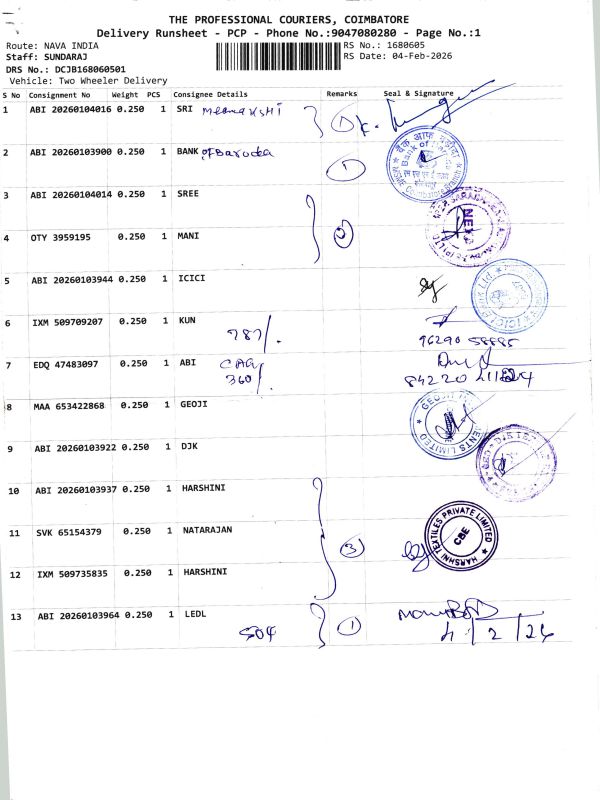 THE PROFESSIONAL COURIERS, COIMBATORE
Delivery Runsheet - PCP - Phone No.:9047080280 - Page No.:1
Route: NAVA INDIA
Staff: SUNDARAJ
DRS No.: DCJB168060501
Vehicle: Two Wheeler Delivery
RS No.: 1680605
RS Date: 04-Feb-2026
S No Consignment No Weight PCS Consignee Details Remarks Seal & Signature
1 ABI 20260104016 0.250 1 SRI Meenakshi 1
2 ABI 20260103900 0.250 1 BANK of Baroda 1
3 ABI 20260104014 0.250 1 SREE
4 OTY 3959195 0.250 1 MANI 2
5 ABI 20260103944 0.250 1 ICICI
6 IXM 509709207 0.250 1 KUN
787/. 96290 58885
7 EDQ 47483097 0.250 1 ABI CAG
360/.
8 MAA 653422868 0.250 1 GEOJI
GEOJIT LIMITED
9 ABI 20260103922 0.250 1 DJK
10 ABI 20260103937 0.250 1 HARSHINI
11 SVK 65154379 0.250 1 NATARAJAN 3
HARSHNI TEXTILES PRIVATE LIMITED
CBE
12 IXM 509735835 0.250 1 HARSHINI
13 ABI 20260103964 0.250 1 LEDL 1
504 4/2/26